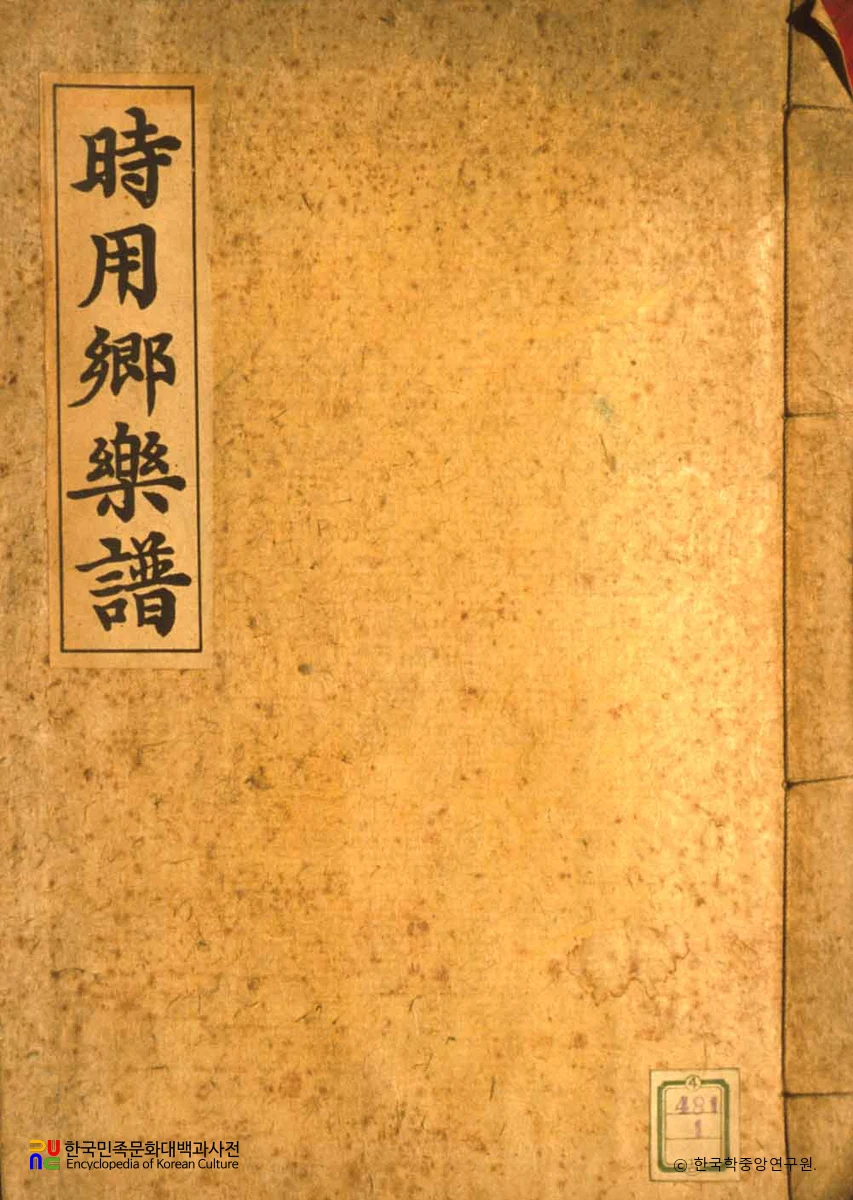 時用鄉樂譜
④
481
1
한국민족문화대백과사전
Encyclopedia of Korean Culture
© 한국학중앙연구원.